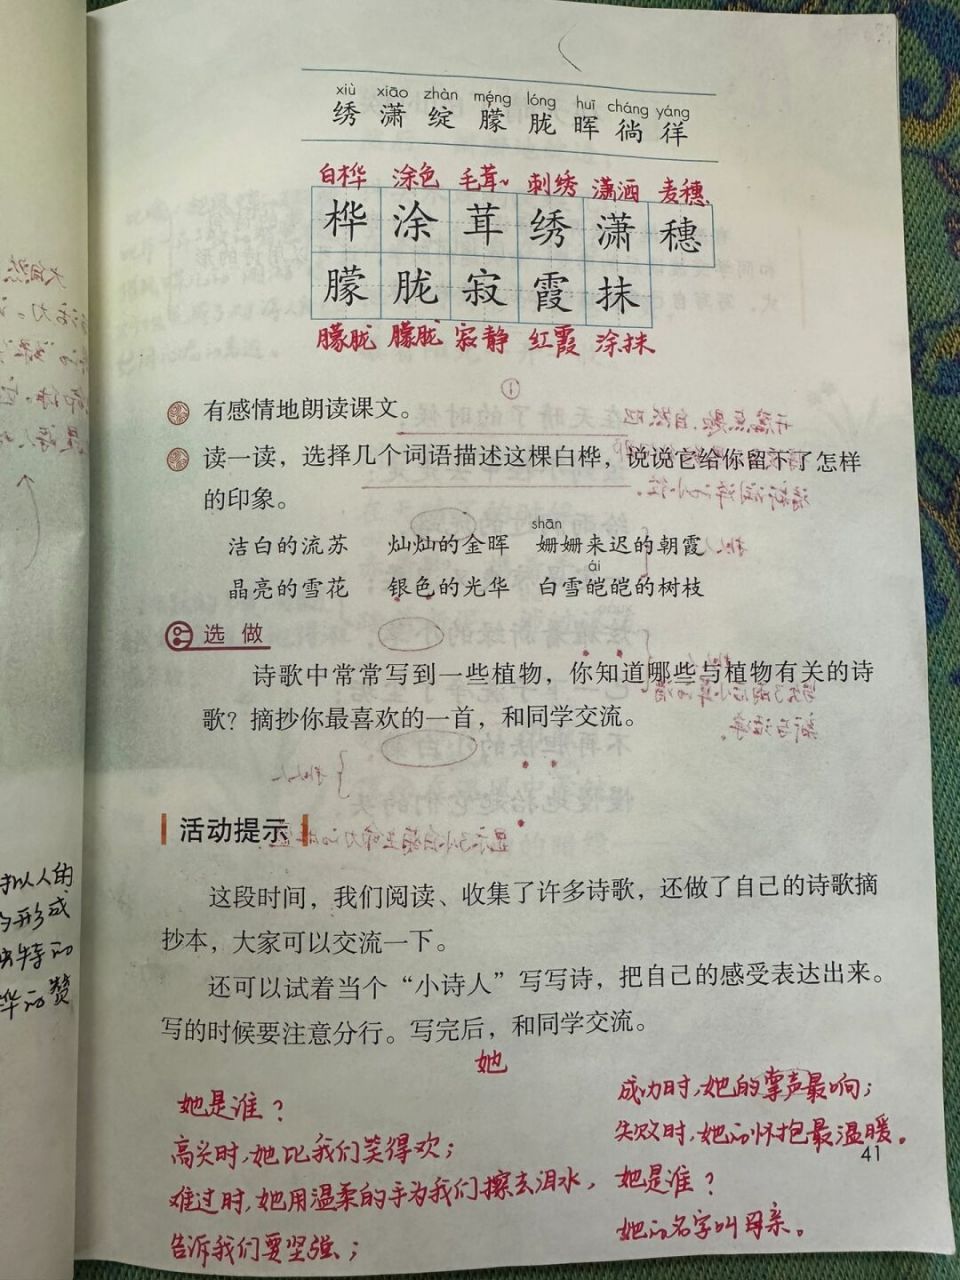 xiù xiāo zhàn méng lóng huī cháng yáng
绣 潇 绽 朦 胧 晖 徜 徉
白桦 涂色 毛茸~ 刺绣 潇洒 麦穗
桦 涂 茸 绣 潇 穗
朦 胧 寂 霞 抹
朦胧 朦胧 寂静 红霞 涂抹
有感情地朗读课文。
读一读，选择几个词语描述这棵白桦，说说它给你留下了怎样
的印象。
shān
洁白的流苏 灿灿的金晖 姗姗来迟的朝霞
ái
晶亮的雪花 银色的光华 白雪皑皑的树枝
选做
诗歌中常常写到一些植物，你知道哪些与植物有关的诗
歌？摘抄你最喜欢的一首，和同学交流。
活动提示
这段时间，我们阅读、收集了许多诗歌，还做了自己的诗歌摘
抄本，大家可以交流一下。
还可以试着当个“小诗人”写写诗，把自己的感受表达出来。
写的时候要注意分行。写完后，和同学交流。
她
她是谁？
高兴时，她比我们笑得欢；
难过时，她用温柔的手为我们擦去泪水，
告诉我们要坚强；
成功时，她的掌声最响；
失败时，她的怀抱最温暖。
她是谁？
她的名字叫母亲。
41
拟人的
形成
特的
桦的赞